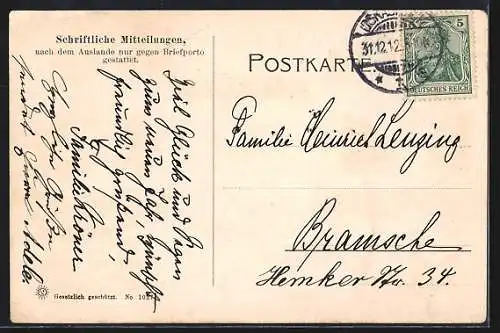 Schriftliche Mitteilungen,
nach dem Auslande nur gegen Briefporto
gestattet.
POSTKARTE
31.12.12
5
DEUTSCHES REICH
Familie Heinrich Lenzing
Bramsche
Hemker Str. 34.
Viel Glück und Segen
zum neuen Jahr wünscht
freundlich grüßend,
Familie Kröner
Grüße
sendet Adele.
Gesetzlich geschützt. No